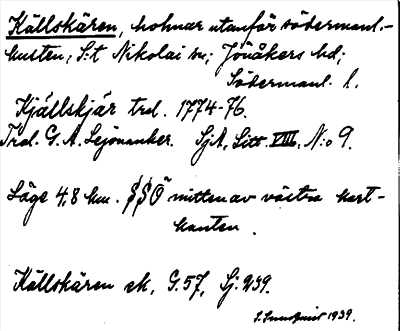 Källskären, holmar utanför södermanl.-
kusten; S:t Nikolai sn; Jönåkers hd;
Södermanl. l.
Kjällskjär trol. 1774-76.
Trol. G. A. Lejonanker. SjA, Litt. VIII, N:o 9.
Läge 4,8 km. SSO mitten av västra kart-
kanten.
Källskären ek, G.57, Sj. 239.
1939.